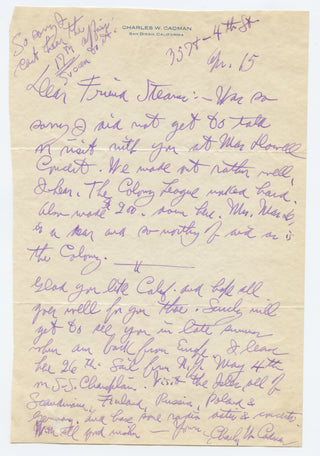 CHARLES W. CADMAN
SAN DIEGO, CALIFORNIA
So sorry I
cant hear the affair
3578 - 4th St
Apr. 15
Dear Friend Stearns:- Was so
sorry I did not get to talk
or visit with you at Mrs Howell
Concert. We made out rather well,
I hear. The Colony League worked hard.
Alone made $200. Mrs. Mac
is a dear and so worthy of aid as is
the Colony.
Glad you like Calif. and hope all
goes well for you there. Surely will
get to see you in late summer
when am back from Europe. I leave
here 26th. Sail from N.Y. May 4th
on S-S. Champlain. Visit the Isles, all of
Scandinavia, Finland, Russia, Poland &
Germany, and have some radio dates & concerts.
With all good wishes — Yours, Charles W. Cadman